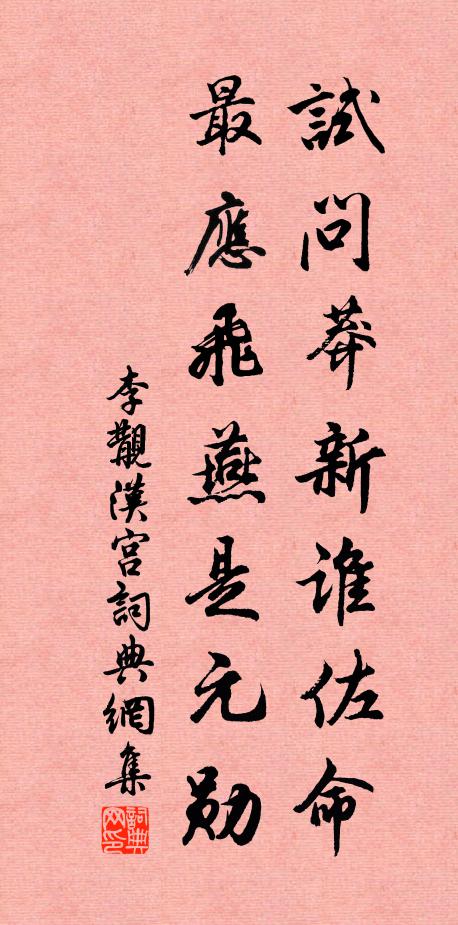 試問莽新誰佐命
最應飛燕是元勛
李覯漢宮詞典網集
詞典網印